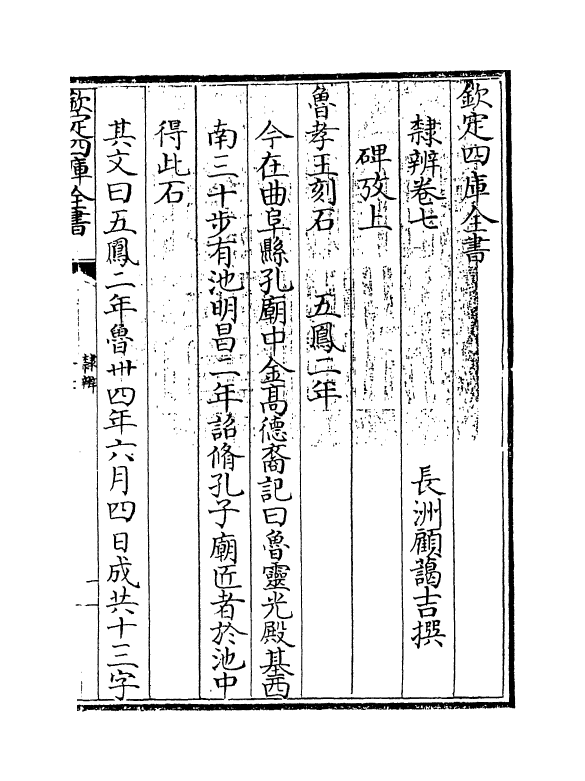 欽定四庫全書
隸辨卷七
長洲顧藹吉撰
碑攷上
魯孝王刻石 五鳳二年
今在曲阜縣孔廟中金髙德裔記曰魯靈光殿基西
南三十步有池明昌二年詔脩孔子廟匠者於池中
得此石
其文曰五鳳二年魯卅四年六月四日成共十三字
欽定四庫全書
隸辨